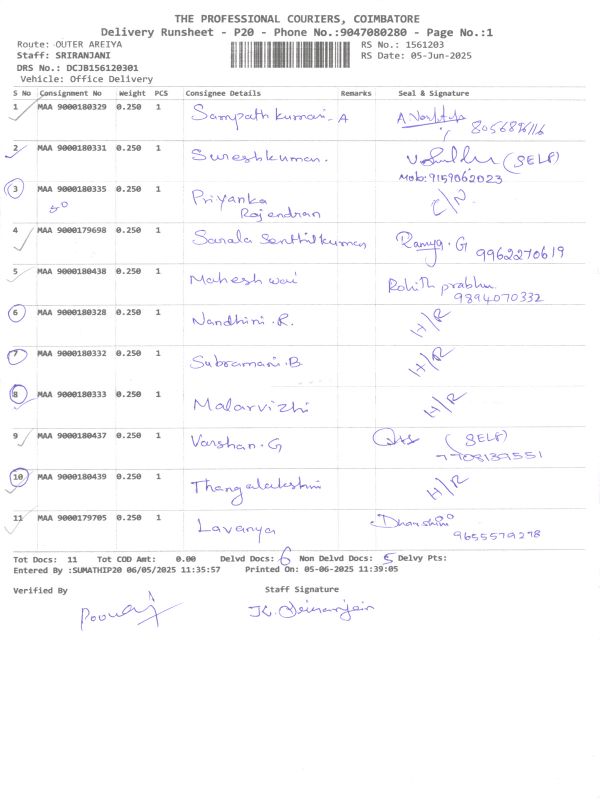 THE PROFESSIONAL COURIERS, COIMBATORE
Delivery Runsheet - P20 - Phone No.:9047080280 - Page No.:1
Route: OUTER AREIYA RS No.: 1561203
Staff: SRIRANJANI RS Date: 05-Jun-2025
DRS No.: DCJB156120301
Vehicle: Office Delivery
S No Consignment No Weight PCS Consignee Details Remarks Seal & Signature
1 MAA 9000180329 0.250 1 Sampath kumar. A
2 MAA 9000180331 0.250 1 Sureshkumar. (SELF)
Mob: 9159062023
3 MAA 9000180335 0.250 1 Priyanka
50 Rajendran
4 MAA 9000179698 0.250 1 Sarala Senthilkumar Ramya. G 9962270619
5 MAA 9000180438 0.250 1 Maheshwari Rohith prabhu
9894070332
6 MAA 9000180328 0.250 1 Nandhini. R. H/R
7 MAA 9000180332 0.250 1 Subramani. B H/R
8 MAA 9000180333 0.250 1 Malarvizhi H/R
9 MAA 9000180437 0.250 1 Varshan. G (SELF)
7708139551
10 MAA 9000180439 0.250 1 Thangalakshmi H/R
11 MAA 9000179705 0.250 1 Lavanya Dharshini
9655579278
Tot Docs: 11 Tot COD Amt: 0.00 Delvd Docs: 6 Non Delvd Docs: 5 Delvy Pts:
Entered By :SUMATHIP20 06/05/2025 11:35:57 Printed On: 05-06-2025 11:39:05
Verified By Staff Signature